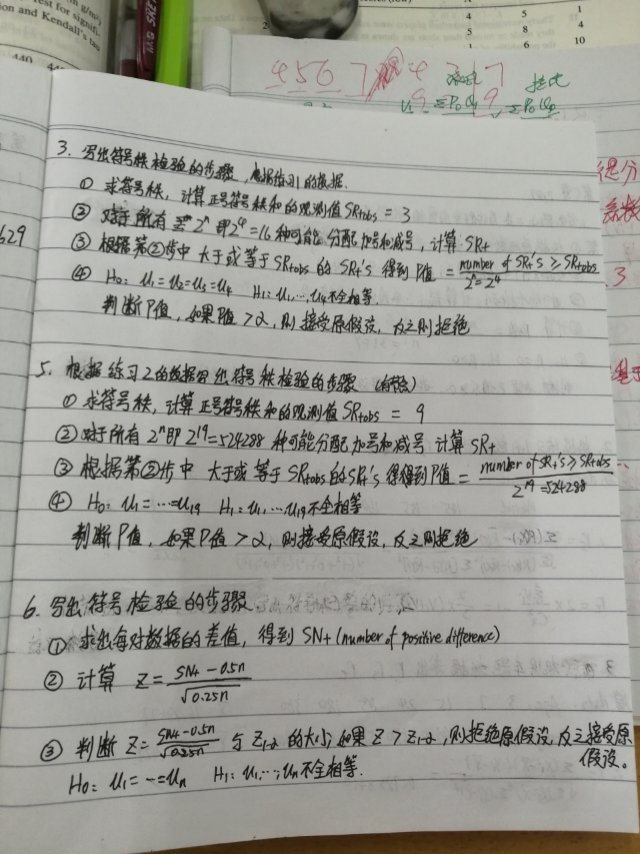 test for signifi-
tion and Kendall's tau
440
440
5 5 1
5 8 4
4 6 10
4 5 6 7
4 3 1 7
629
得分
3. 写出符号秩检验的步骤,根据练习1的数据.
① 求符号秩,计算正号符号秩和的观测值SR+obs = 3
② 对于所有 2^n 即2^4=16种可能分配加号和减号,计算SR+
③ 根据第②步中 大于或等于SR+obs 的 SR+'s 得到P值 = number of SR+'s ≥ SR+obs / 2^n=2^4
④ H0: u1=u2=u3=u4 H1: u1,…,u4不全相等
判断P值,如果P值>α,则接受原假设,反之则拒绝
5. 根据练习2的数据写出符号秩检验的步骤
① 求符号秩,计算正号符号秩和的观测值SR+obs = 9
② 对于所有 2^n即 2^19=524288 种可能分配加号和减号 计算SR+
③ 根据第②步中 大于或等于SR+obs的SR+'s 得得到P值 = number of SR+'s ≥ SR+obs / 2^19=524288
④ H0: u1=…=u19 H1: u1,…u19不全相等
判断P值,如果P值>α,则接受原假设,反之则拒绝
6. 写出符号检验的步骤.
① 求出每对数据的差值,得到SN+(number of positive difference)
② 计算 Z = SN+ - 0.5n / √0.25n
③ 判断 Z = SN+ - 0.5n / √0.25n 与 Z1-α 的大小,如果 Z > Z1-α,则拒绝原假设,反之接受原
假设。
H0: u1=…=un H1: u1,…,un不全相等.